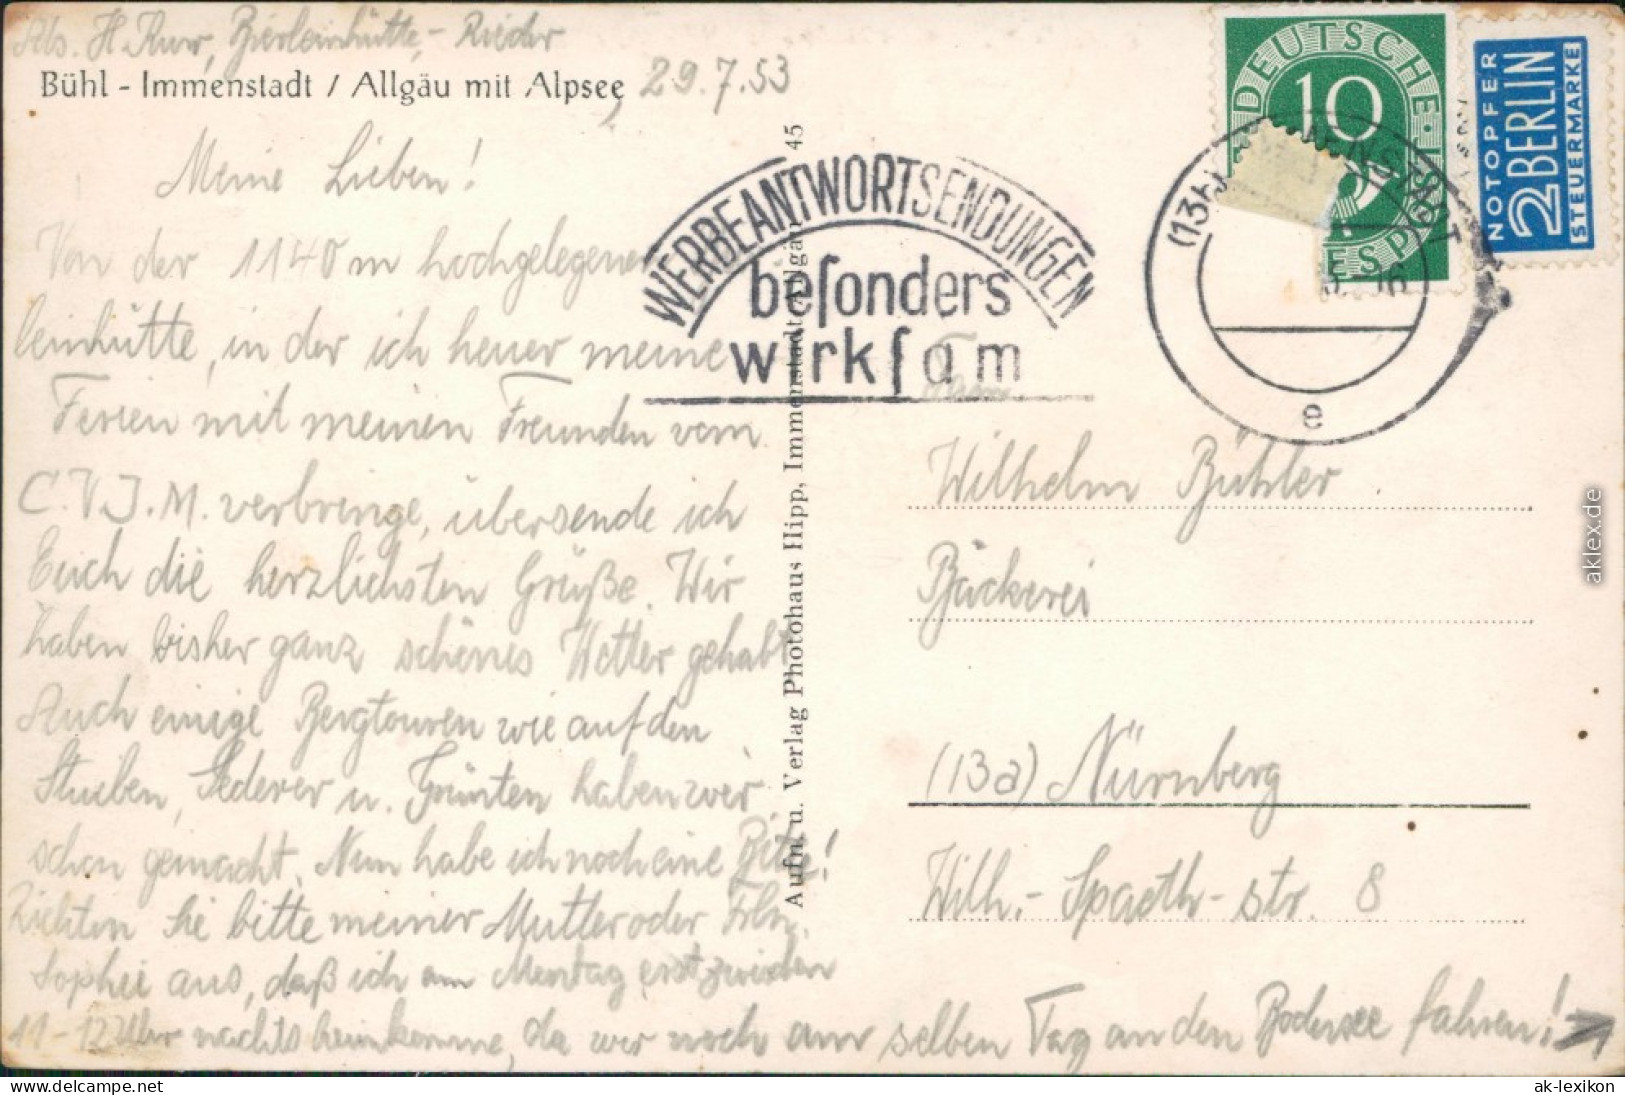 Abs. H. Bierleinhütte, - Rieder
Bühl - Immenstadt / Allgäu mit Alpsee, 29.7.53
Meine Lieben!
Von der 1140 m hochgelegenen
leinhütte, in der ich heuer meine
Ferien mit meinen Freunden vom
C.V.J.M. verbringe, übersende ich
Euch die herzlichsten Grüße. Wir
haben bisher ganz schönes Wetter gehabt
Auch einige Bergtouren wie auf den
Stuiben, Sederer u. Grünten haben wir
schon gemacht. Nun habe ich noch eine Bitte!
Richten Sie bitte meiner Mutter oder Frln.
Sophie aus, daß ich am Montag erst zwischen
11-12 Uhr nachts heimkomme, da wir noch am selben Tag an den Bodensee fahren!
Aufn. u. Verlag Photohaus Hipp, Immenstadt/Allgäu 45
WERBEANTWORTSENDUNGEN
beſonders
wirkſam
DEUTSCHE
10
NOTOPFER
2 BERLIN
STEUERMARKE
e
Fam.
Wilhelm Bühler
Bäckerei
(13a) Nürnberg
Wilh.-Spaeth-str. 8
aklex.de
delcampe.net
ak-lexikon